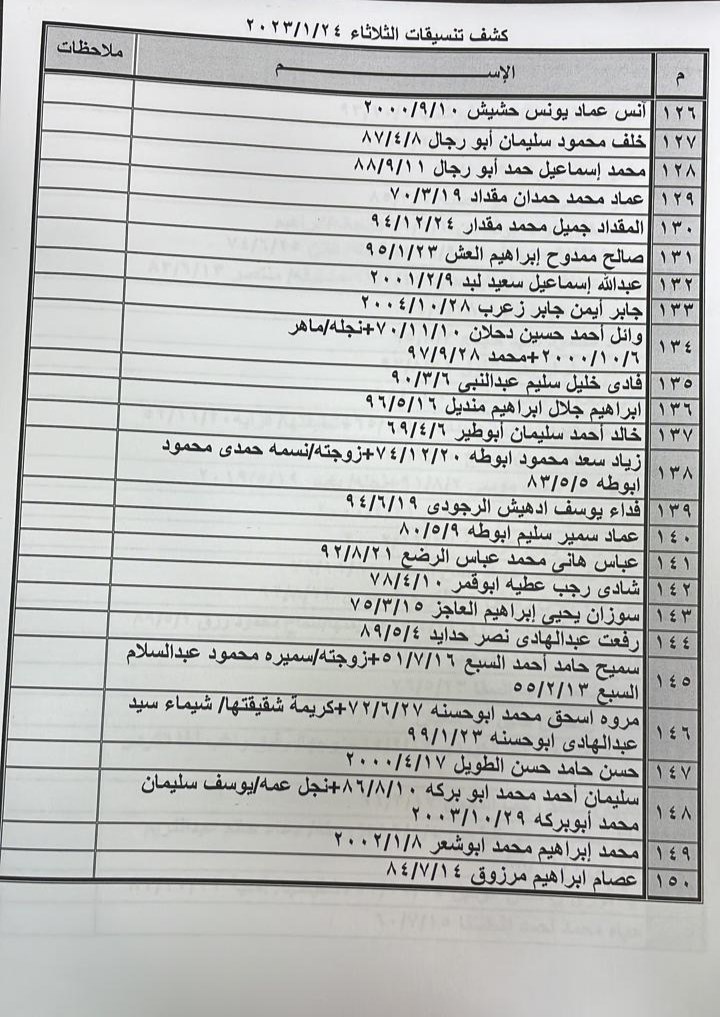 كشف تنسيقات الثلاثاء ٢٠٢٣/١/٢٤
م الإســـــــــم ملاحظات
١٢٦ أنس عماد يونس حشيش ٢٠٠٠/٩/١٠
١٢٧ خلف محمود سليمان أبو رجال ٨٧/٤/٨
١٢٨ محمد إسماعيل حمد أبو رجال ٨٨/٩/١١
١٢٩ عماد محمد حمدان مقداد ٧٠/٣/١٩
١٣٠ المقداد جميل محمد مقدار ٩٤/١٢/٢٤
١٣١ صالح ممدوح إبراهيم العش ٩٥/١/٢٣
١٣٢ عبدالله إسماعيل سعيد لبد ٢٠٠١/٢/٩
١٣٣ جابر أيمن جابر زعرب ٢٠٠٤/١٠/٢٨
١٣٤ وائل أحمد حسين دحلان ٧٠/١١/١٠+نجله/ماهر
٢٠٠٠/١٠/٦+محمد ٩٧/٩/٢٨
١٣٥ فادى خليل سليم عبدالنبى ٩٠/٣/٦
١٣٦ ابراهيم جلال ابراهيم منديل ٩٦/٥/١٦
١٣٧ خالد أحمد سليمان أبوطير ٦٩/٤/٦
١٣٨ زياد سعد محمود ابوطه ٧٤/١٢/٢٠+زوجته/نسمه حمدى محمود
ابوطه ٨٣/٥/٥
١٣٩ فداء يوسف ادهيش الرجودى ٩٤/٦/١٩
١٤٠ عماد سمير سليم ابوطه ٨٠/٥/٩
١٤١ عباس هانى محمد عباس الرضع ٩٢/٨/٢١
١٤٢ شادى رجب عطيه ابوقمر ٧٨/٤/١٠
١٤٣ سوزان يحيى إبراهيم العاجز ٧٥/٣/١٥
١٤٤ رفعت عبدالهادى نصر حدايد ٨٩/٥/٤
١٤٥ سميح حامد أحمد السبع ٥١/٧/١٦+زوجته/سميره محمود عبدالسلام
السبع ٥٥/٢/١٣
١٤٦ مروه اسحق محمد ابوحسنه ٧٢/٦/٢٧+كريمة شقيقتها/ شيماء سيد
عبدالهادى ابوحسنه ٩٩/١/٢٣
١٤٧ حسن حامد حسن الطويل ٢٠٠٠/٤/١٧
١٤٨ سليمان أحمد محمد ابو بركه ٨٦/٨/١٠+نجل عمه/يوسف سليمان
محمد أبوبركه ٢٠٠٣/١٠/٢٩
١٤٩ محمد إبراهيم محمد ابوشعر ٢٠٠٢/١/٨
١٥٠ عصام ابراهيم مرزوق ٨٤/٧/١٤